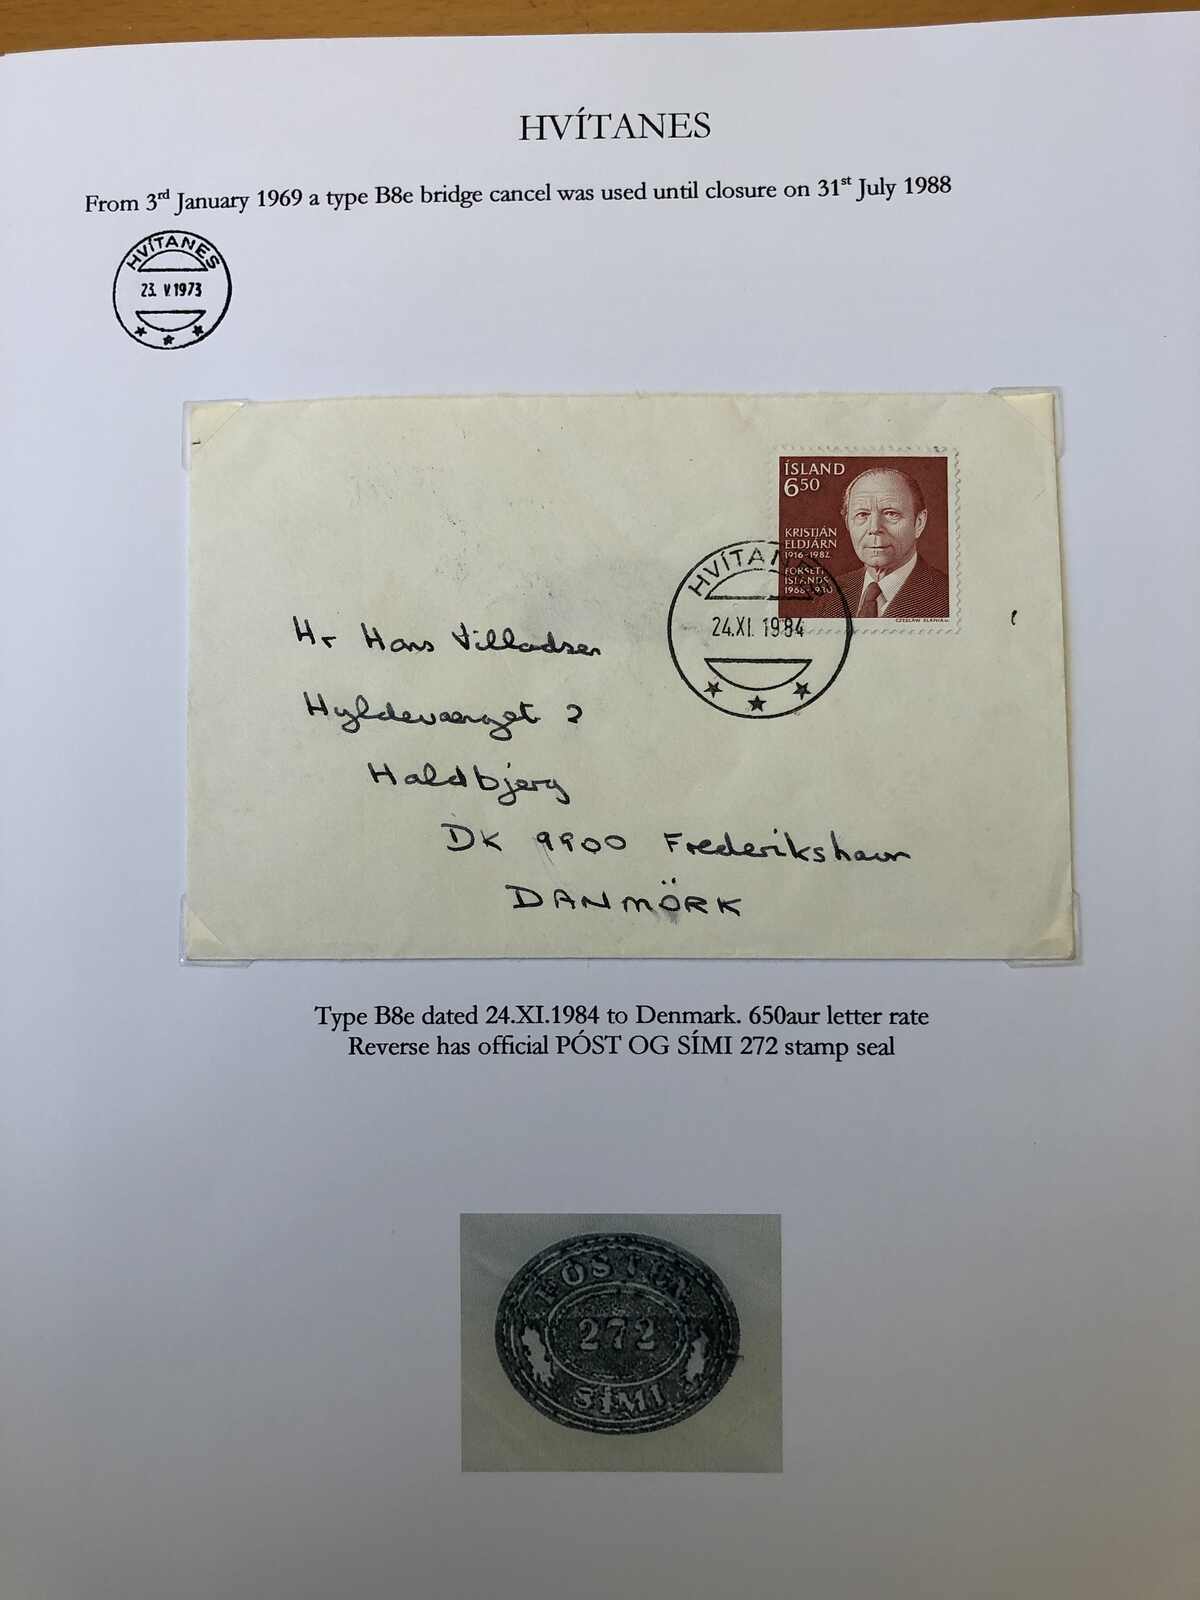 HVÍTANES
From 3rd January 1969 a type B8e bridge cancel was used until closure on 31st July 1988
HVÍTANES
23. V.1973
ÍSLAND
650
KRISTJÁN
ELDJÁRN
1916-1982
FORSETI
ÍSLANDS
1968-1980
CZESLAW SLANIA sc.
HVÍTANES
24.XI. 1984
Hr Hans Villadsen
Hyldeværget 2
Haldbjerg
DK 9900 Frederikshavn
DANMÖRK
Type B8e dated 24.XI.1984 to Denmark. 650aur letter rate
Reverse has official PÓST OG SÍMI 272 stamp seal
272
SÍMI